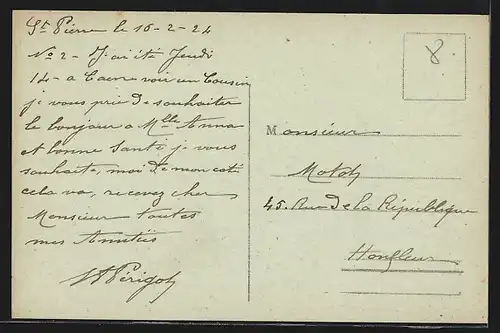 St Pierre le 16-2-24
No 2 - J'ai été Jeudi
14 - a Caen voir un Cousin
je vous prie de souhaiter
le bonjour a Mlle Anna
et bonne santé je vous
souhaite, moi de mon coté
cela va, recevez cher
Monsieur toutes
mes Amitiés
8
Monsieur
45. Rue de la République
Honfleur